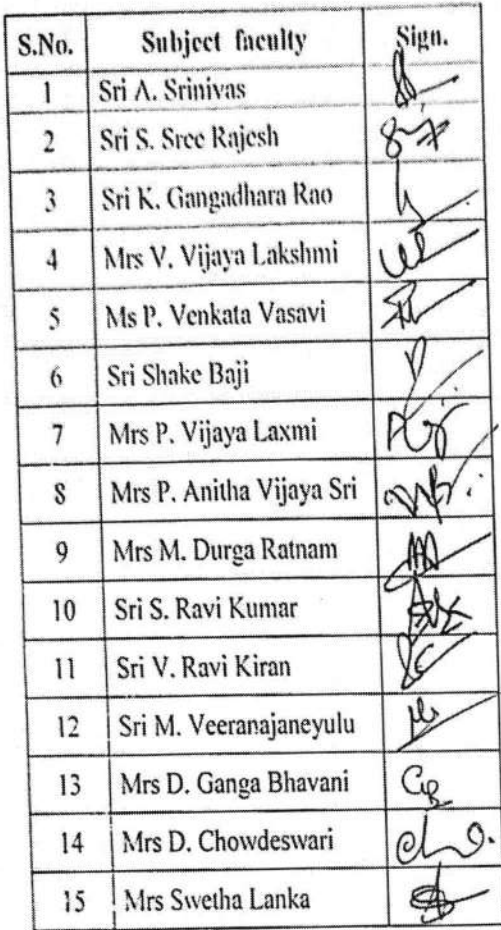 S.No. Subject faculty Sign.
1 Sri A. Srinivas
2 Sri S. Sree Rajesh
3 Sri K. Gangadhara Rao
4 Mrs V. Vijaya Lakshmi
5 Ms P. Venkata Vasavi
6 Sri Shake Baji
7 Mrs P. Vijaya Laxmi
8 Mrs P. Anitha Vijaya Sri
9 Mrs M. Durga Ratnam
10 Sri S. Ravi Kumar
11 Sri V. Ravi Kiran
12 Sri M. Veeranajaneyulu
13 Mrs D. Ganga Bhavani
14 Mrs D. Chowdeswari
15 Mrs Swetha Lanka